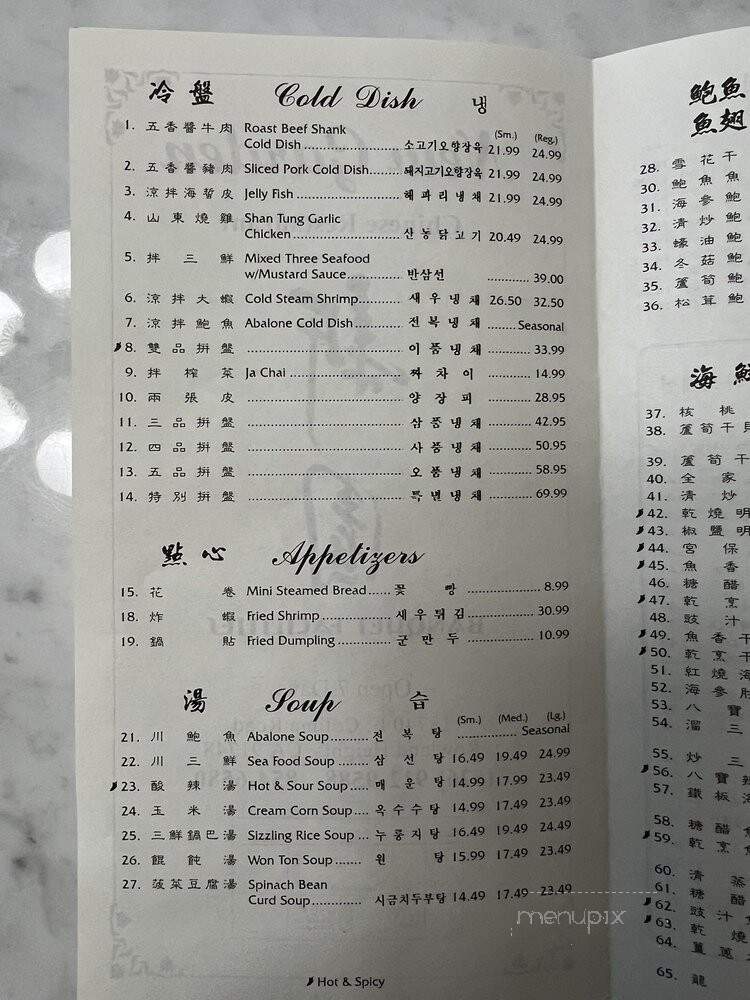 冷盤 Cold Dish 냉
(Sm.) (Reg.)
1. 五香醬牛肉 Roast Beef Shank
Cold Dish 소고기오향장육 21.99 24.99
2. 五香醬豬肉 Sliced Pork Cold Dish 돼지고기오향장육 21.99 24.99
3. 涼拌海蜇皮 Jelly Fish 해파리냉채 21.99 24.99
4. 山東燒雞 Shan Tung Garlic
Chicken 산동닭고기 20.49 24.99
5. 拌三鮮 Mixed Three Seafood
w/Mustard Sauce 반삼선 39.00
6. 涼拌大蝦 Cold Steam Shrimp 새우냉채 26.50 32.50
7. 涼拌鮑魚 Abalone Cold Dish 전복냉채 Seasonal
8. 雙品拼盤 이품냉채 33.99
9. 拌榨菜 Ja Chai 짜차이 14.99
10. 兩張皮 양장피 28.95
11. 三品拼盤 삼품냉채 42.95
12. 四品拼盤 사품냉채 50.95
13. 五品拼盤 오품냉채 58.95
14. 特別拼盤 특별냉채 69.99
點心 Appetizers
15. 花卷 Mini Steamed Bread 꽃빵 8.99
18. 炸蝦 Fried Shrimp 새우튀김 30.99
19. 鍋貼 Fried Dumpling 군만두 10.99
湯 Soup 습
(Sm.) (Med.) (Lg.)
21. 川鮑魚 Abalone Soup 전복탕 Seasonal
22. 川三鮮 Sea Food Soup 삼선탕 16.49 19.49 24.99
23. 酸辣湯 Hot & Sour Soup 매운탕 14.99 17.99 23.49
24. 玉米湯 Cream Corn Soup 옥수수탕 14.99 17.49 23.49
25. 三鮮鍋巴湯 Sizzling Rice Soup 누룽지탕 16.49 19.49 24.49
26. 餛飩湯 Won Ton Soup 원탕 15.99 17.49 23.49
27. 菠菜豆腐湯 Spinach Bean
Curd Soup 시금치두부탕 14.49 17.49 23.49
Hot & Spicy
鮑魚
魚翅
28. 雪花干
30. 鮑魚魚
31. 海參鮑
32. 清炒鮑
33. 蠔油鮑
34. 冬菇鮑
35. 蘆筍鮑
36. 松茸鮑
海鮮
37. 核桃
38. 蘆筍干貝
39. 蘆筍干
40. 全家
41. 清炒
42. 乾燒明
43. 椒鹽明
44. 宮保
45. 魚香
46. 糖醋
47. 乾烹
48. 豉汁
49. 魚香干
50. 乾烹干
51. 紅燒海
52. 海參肚
53. 八寶
54. 溜三
55. 炒三
56. 八寶辣
57. 鐵板海
58. 糖醋魚
59. 乾烹魚
60. 清蒸
61. 糖醋
62. 豉汁魚
63. 乾燒
64. 薑蔥
65. 龍
menupix